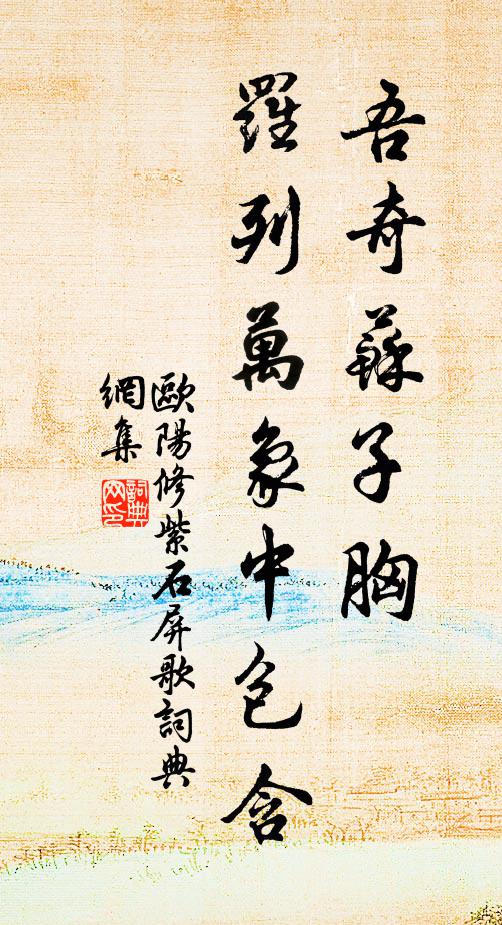 吾奇蘇子胸
羅列萬象中包含
歐陽修紫石屏歌詞典
網集
詞典
网印